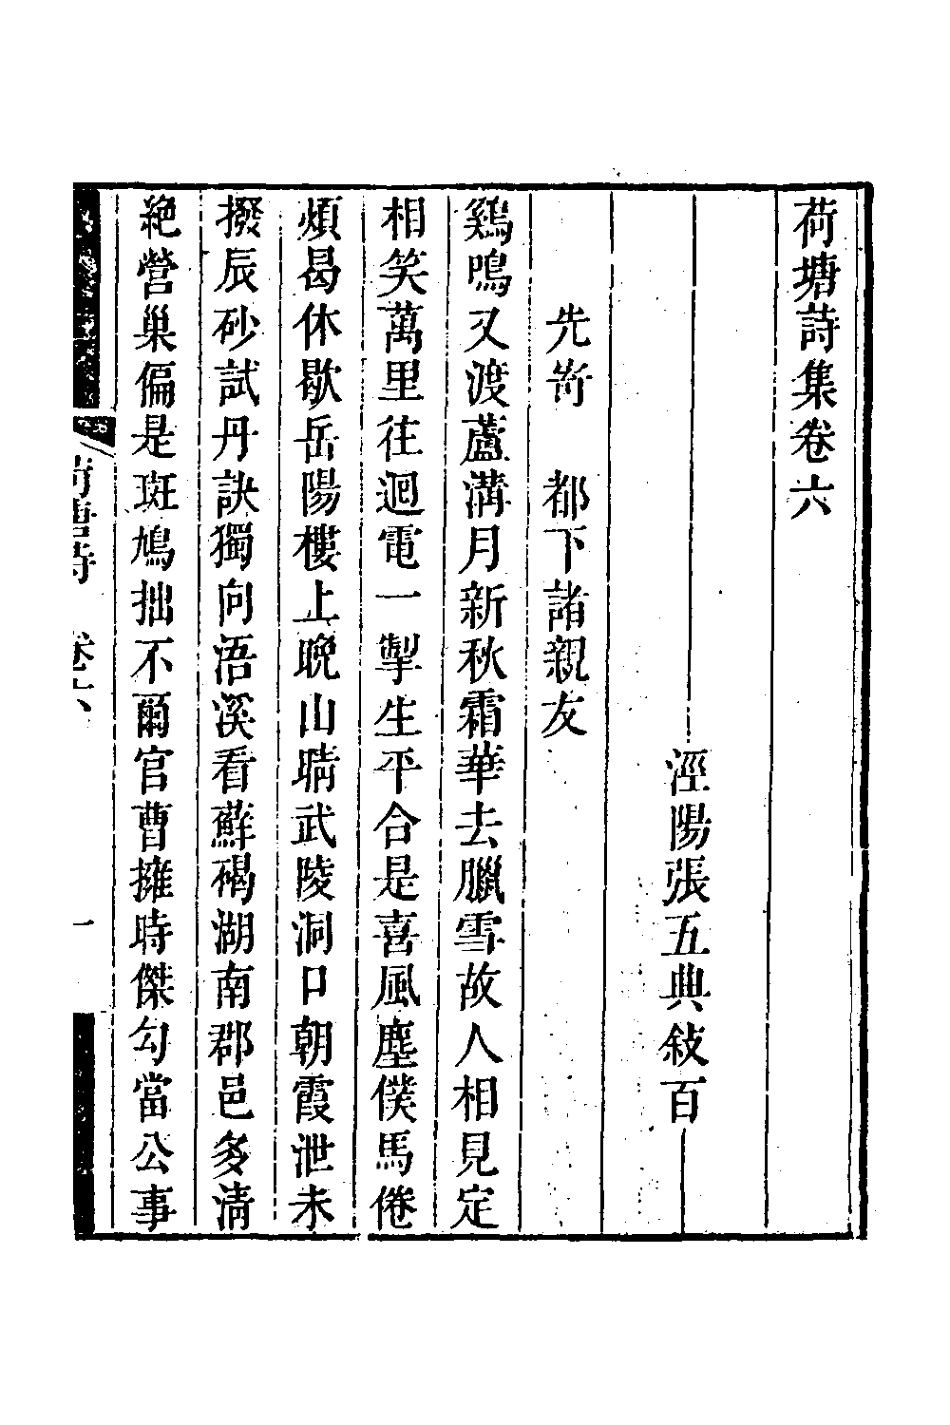 荷塘詩集卷六
涇陽張五典敍百
先寄都下諸親友
鷄鳴又渡蘆溝月新秋霜華去臘雪故人相見定
相笑萬里往迴電一掣生平合是喜風塵僕馬倦
煩曷休歇岳陽樓上晚山晴武陵洞口朝霞泄未
撥辰砂試丹訣獨向浯溪看蘚碣湖南郡邑多清
絶營巢偏是斑鳩拙不爾官曹擁時傑勾當公事
荷塘詩 卷六 一